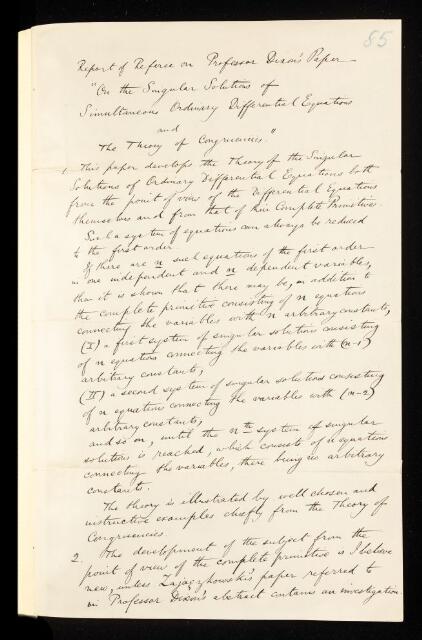 85
Report of Referee on Professor Dixon's Paper
"On the Singular Solutions of
Simultaneous Ordinary Differential Equations
and
The Theory of Congruencies."
1. This paper develops the Theory of the Singular
Solutions of Ordinary Differential Equations both
from the point of view of the Differential Equations
themselves and from that of their Complete Primitives.
Such a system of equations can always be reduced
to the first order.
If there are n such equations of the first order
in one independent and n dependent variables,
then it is shown that there may be, in addition to
the complete primitive consisting of n equations
connecting the variables with n arbitrary constants,
(I) a first system of singular solutions consisting
of n equations connecting the variables with (n-1)
arbitrary constants,
(II) a second system of singular solutions consisting
of n equations connecting the variables with (n-2)
arbitrary constants,
and so on, until the nth system of singular
solutions is reached, which consists of n equations
connecting the variables, there being no arbitrary
constants.
The theory is illustrated by well chosen and
instructive examples chiefly from the Theory of
Congruencies.
2. The development of the subject from the
point of view of the complete primitive is I believe
new, unless Zajaczkowski's paper referred to
in Professor Dixon's abstract contains an investigation